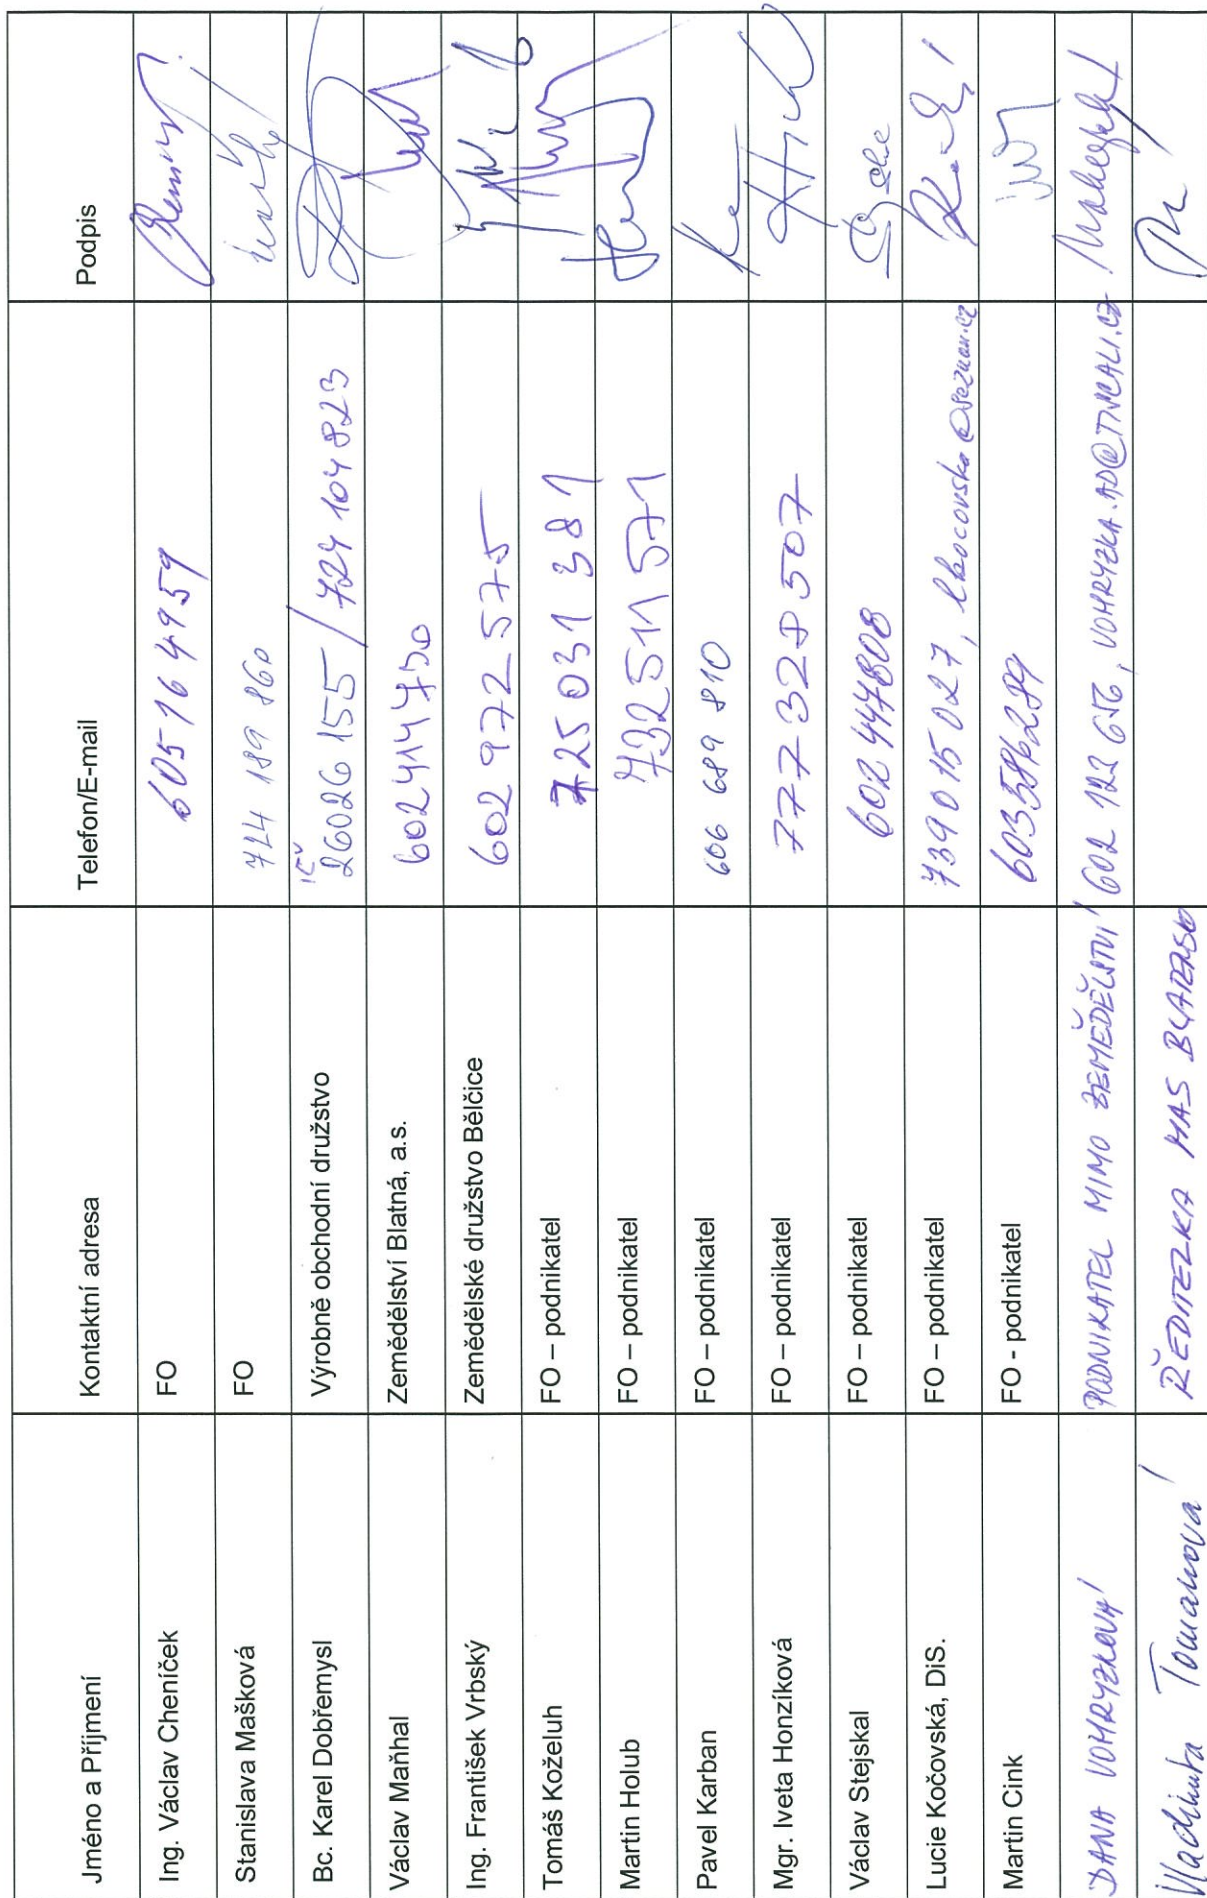 Jméno a Příjmení Kontaktní adresa Telefon/E-mail Podpis
Ing. Václav Cheníček FO 605164959
Stanislava Mašková FO 724 189 860
Bc. Karel Dobřemysl Výrobně obchodní družstvo IČ 26026155 / 724 104 823
Václav Maňhal Zemědělství Blatná, a.s. 602414750
Ing. František Vrbský Zemědělské družstvo Bělčice 602 972 575
Tomáš Koželuh FO – podnikatel 725 031 381
Martin Holub FO – podnikatel 732 511 571
Pavel Karban FO – podnikatel 606 689 810
Mgr. Iveta Honzíková FO – podnikatel 777 328 507
Václav Stejskal FO – podnikatel 602 447808
Lucie Kočovská, DiS. FO – podnikatel 739 015 027, lkocovska@seznam.cz
Martin Cink FO - podnikatel
DANA VOHRYZKOVÁ PODNIKATEL MIMO ZEMĚDĚLSTVÍ 602 122 656, VOHRYZKA.AD@TISCALI.CZ
Vladimíra Tomanová ŘEDITELKA MAS BLATENSKO